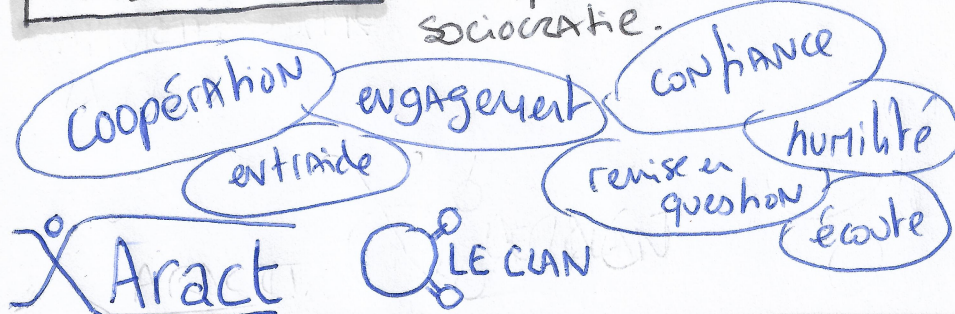 sociocratie.
coopération
engagement
confiance
entraide
remise en
question
humilité
écoute
Aract
LE CLAN